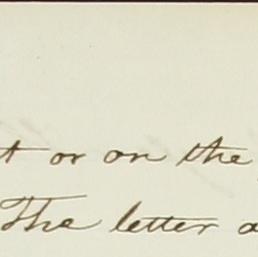 t or on the
The letter a